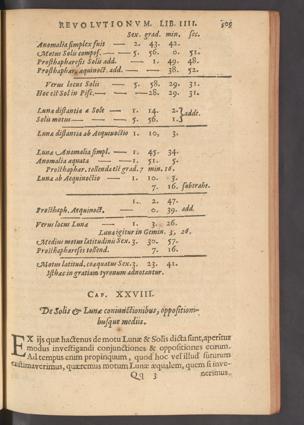 REVOLVTIONVM. LIB. IIII. 309
Sex. grad. min. sec.
Anomalia simplex fuit — 2. 43. 42.
Motus Solis compos. — 5. 56. 0. 51.
Prosthaphæresis Solis add. — 1. 49. 48.
Prosthaphær. æquinoct. add. — 38. 52.
Verus locus Solis — 5. 58. 29. 31.
Hoc est Sol in Pisc. — 28. 29. 31.
Lunæ distantia a Sole — 1. 14. 2.
Solis motus — 5. 56. 1. adde.
Lunæ distantia ab Aequinoctio 1. 10, 3.
Lunæ Anomalia simpl. — 1. 45. 34.
Anomalia æquata — 1. 51. 5.
Prosthaphær. tollenda est grad. 7 min. 16.
Luna ab Aequinoctio — 1. 10. 3.
7. 16. subtrahe.
1. 2. 47.
Prosthaph. Aequinoct. — 0. 39. add.
Verus locus Lunæ — 1. 3. 26.
Luna igitur in Gemin. 3, 26.
Medius motus latitudinis Sex. 3. 30. 57.
Prosthaphæreses tollend. 7. 16.
Motus latitud. coæquatus Sex. 3. 23. 41.
Isthæc in gratiam tyronum adnotantur.
CAP. XXVIII.
De Solis & Lunæ coniunctionibus, oppositioni-
busque medijs.
EX ijs quæ hactenus de motu Lunæ & Solis dicta sunt, aperitur
modus inuestigandi coniunctiones & oppositiones eorum.
Ad tempus enim propinquum, quod hoc vel illud futurum
existimauerimus, quæremus motum Lunæ æqualem, quem si inue-
Qq 3 nerimus,